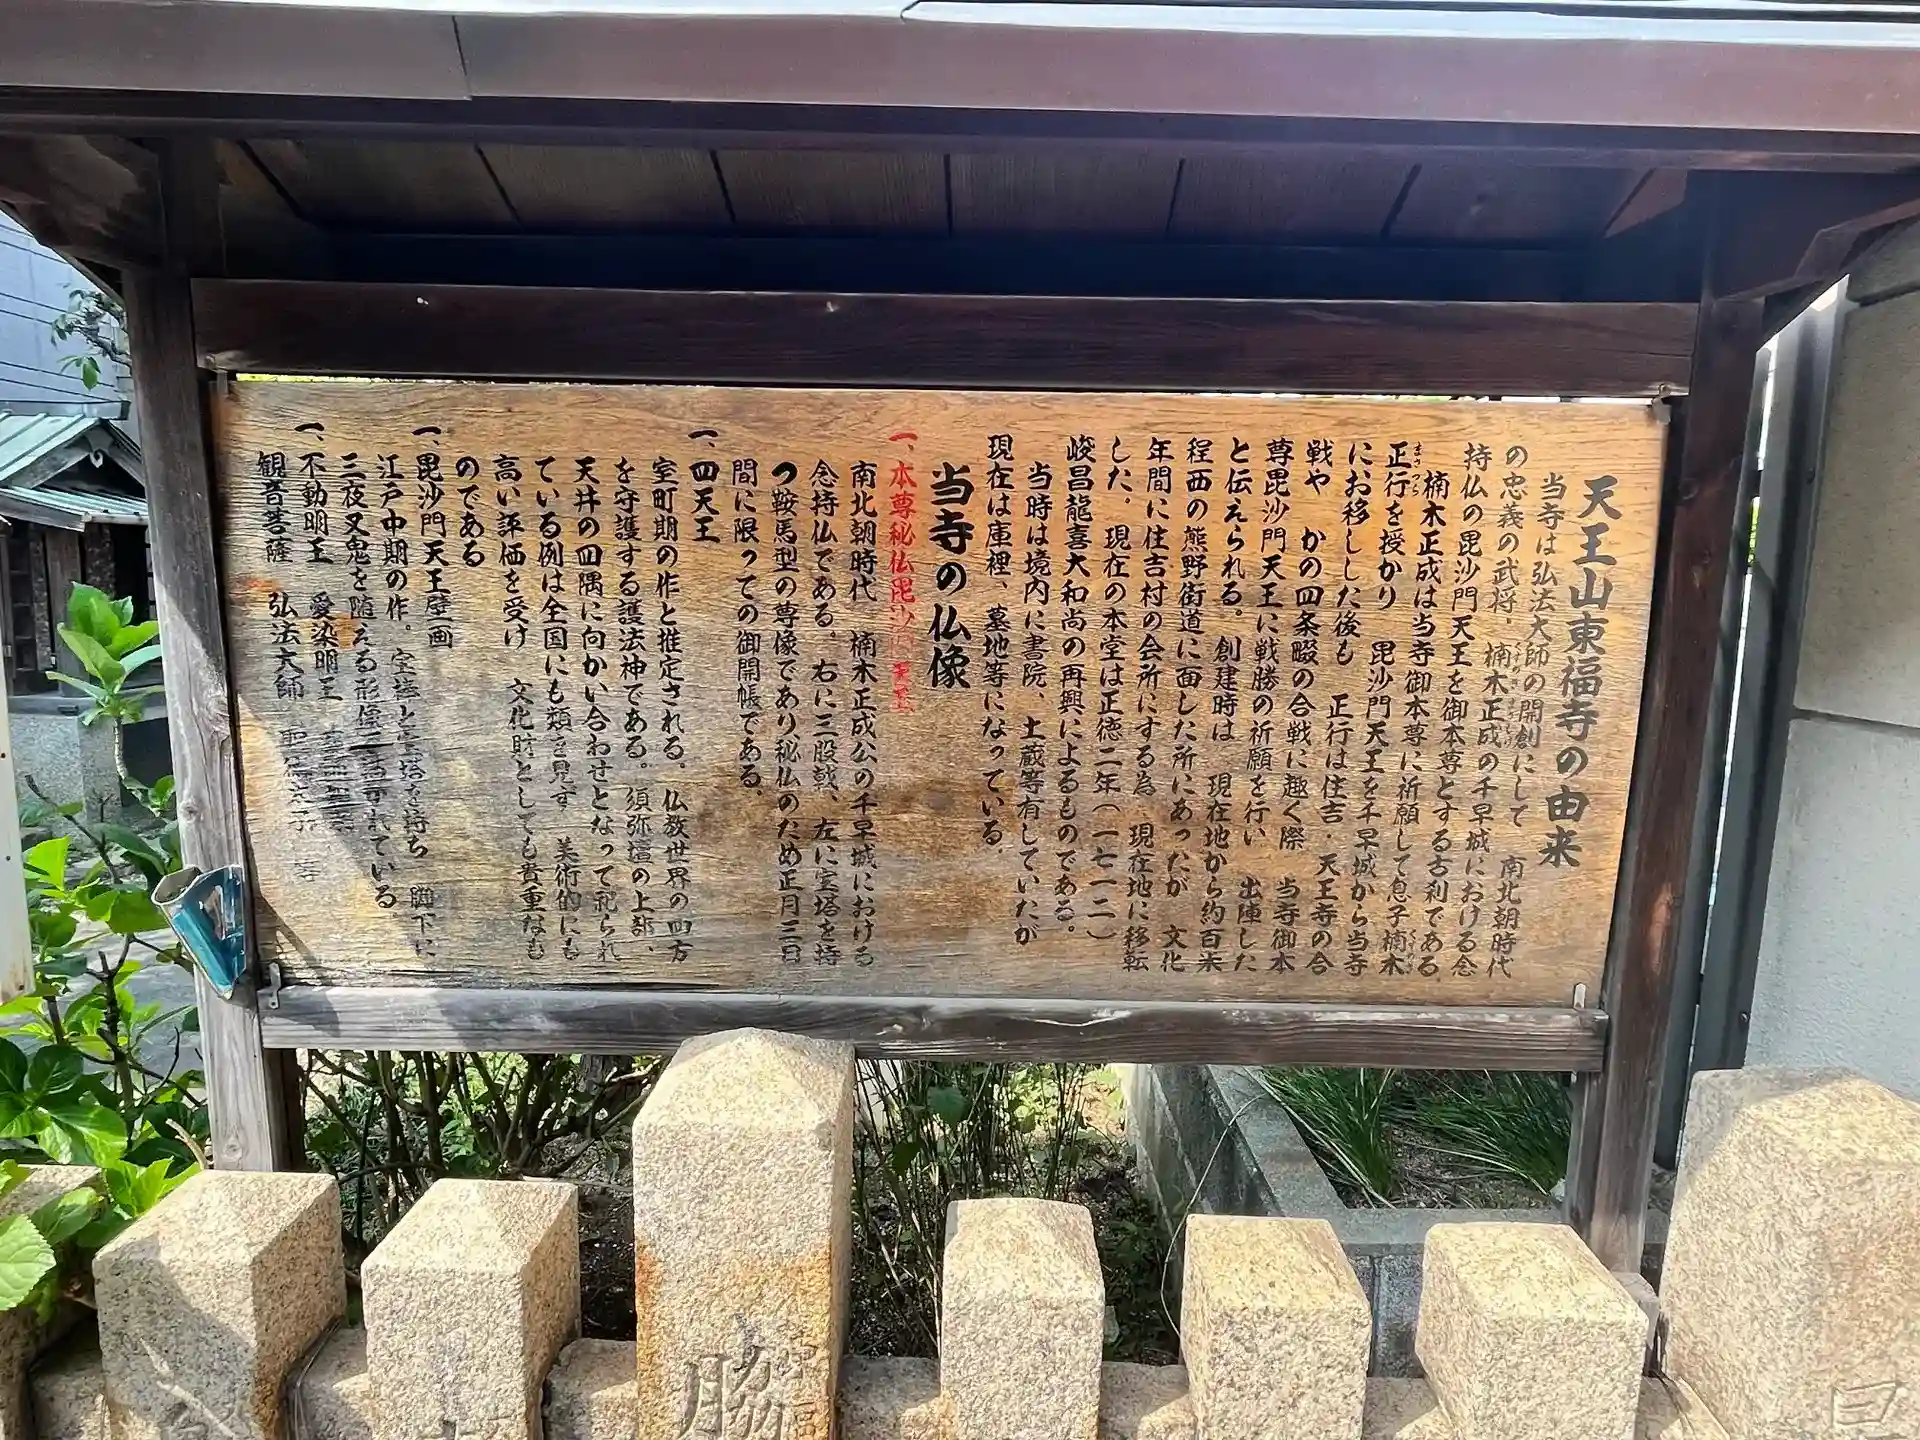 天王山東福寺の由来
当寺は弘法大師の開創にして 南北朝時代
の忠義の武将・楠木正成の千早城における念
持仏の毘沙門天王を御本尊とする古刹である。
楠木正成は当寺御本尊に祈願して息子楠木
正行を授かり 毘沙門天王を千早城から当寺
にお移しした後も 正行は住吉・天王寺の合
戦や かの四条畷の合戦に趣く際 当寺御本
尊毘沙門天王に戦勝の祈願を行い 出陣した
と伝えられる。創建時は 現在地から約百米
程西の熊野街道に面した所にあったが 文化
年間に住吉村の会所にする為 現在地に移転
した。現在の本堂は正徳二年(一七一二)
峻昌龍喜大和尚の再興によるものである。
当時は境内に書院、土蔵等有していたが
現在は庫裡、墓地等になっている。
当寺の仏像
一、本尊秘仏毘沙 天王
南北朝時代 楠木正成公の千早城における
念持仏である。右に三股戟、左に宝塔を持
つ鞍馬型の尊像であり、秘仏のため正月三日
間に限っての御開帳である。
一、四天王
室町期の作と推定される。仏教世界の四方
を守護する護法神である。須弥壇の上部、
天井の四隅に向かい合わせとなって祀られ
ている例は全国にも類を見ず 美術的にも
高い評価を受け 文化財としても貴重なも
のである
一、毘沙門天王壁画
江戸中期の作。宝棒と宝塔を持ち 脚下に
三夜叉鬼を随える形像 れている
一、不動明王 愛染明王
観音菩薩 弘法大師 等
脇